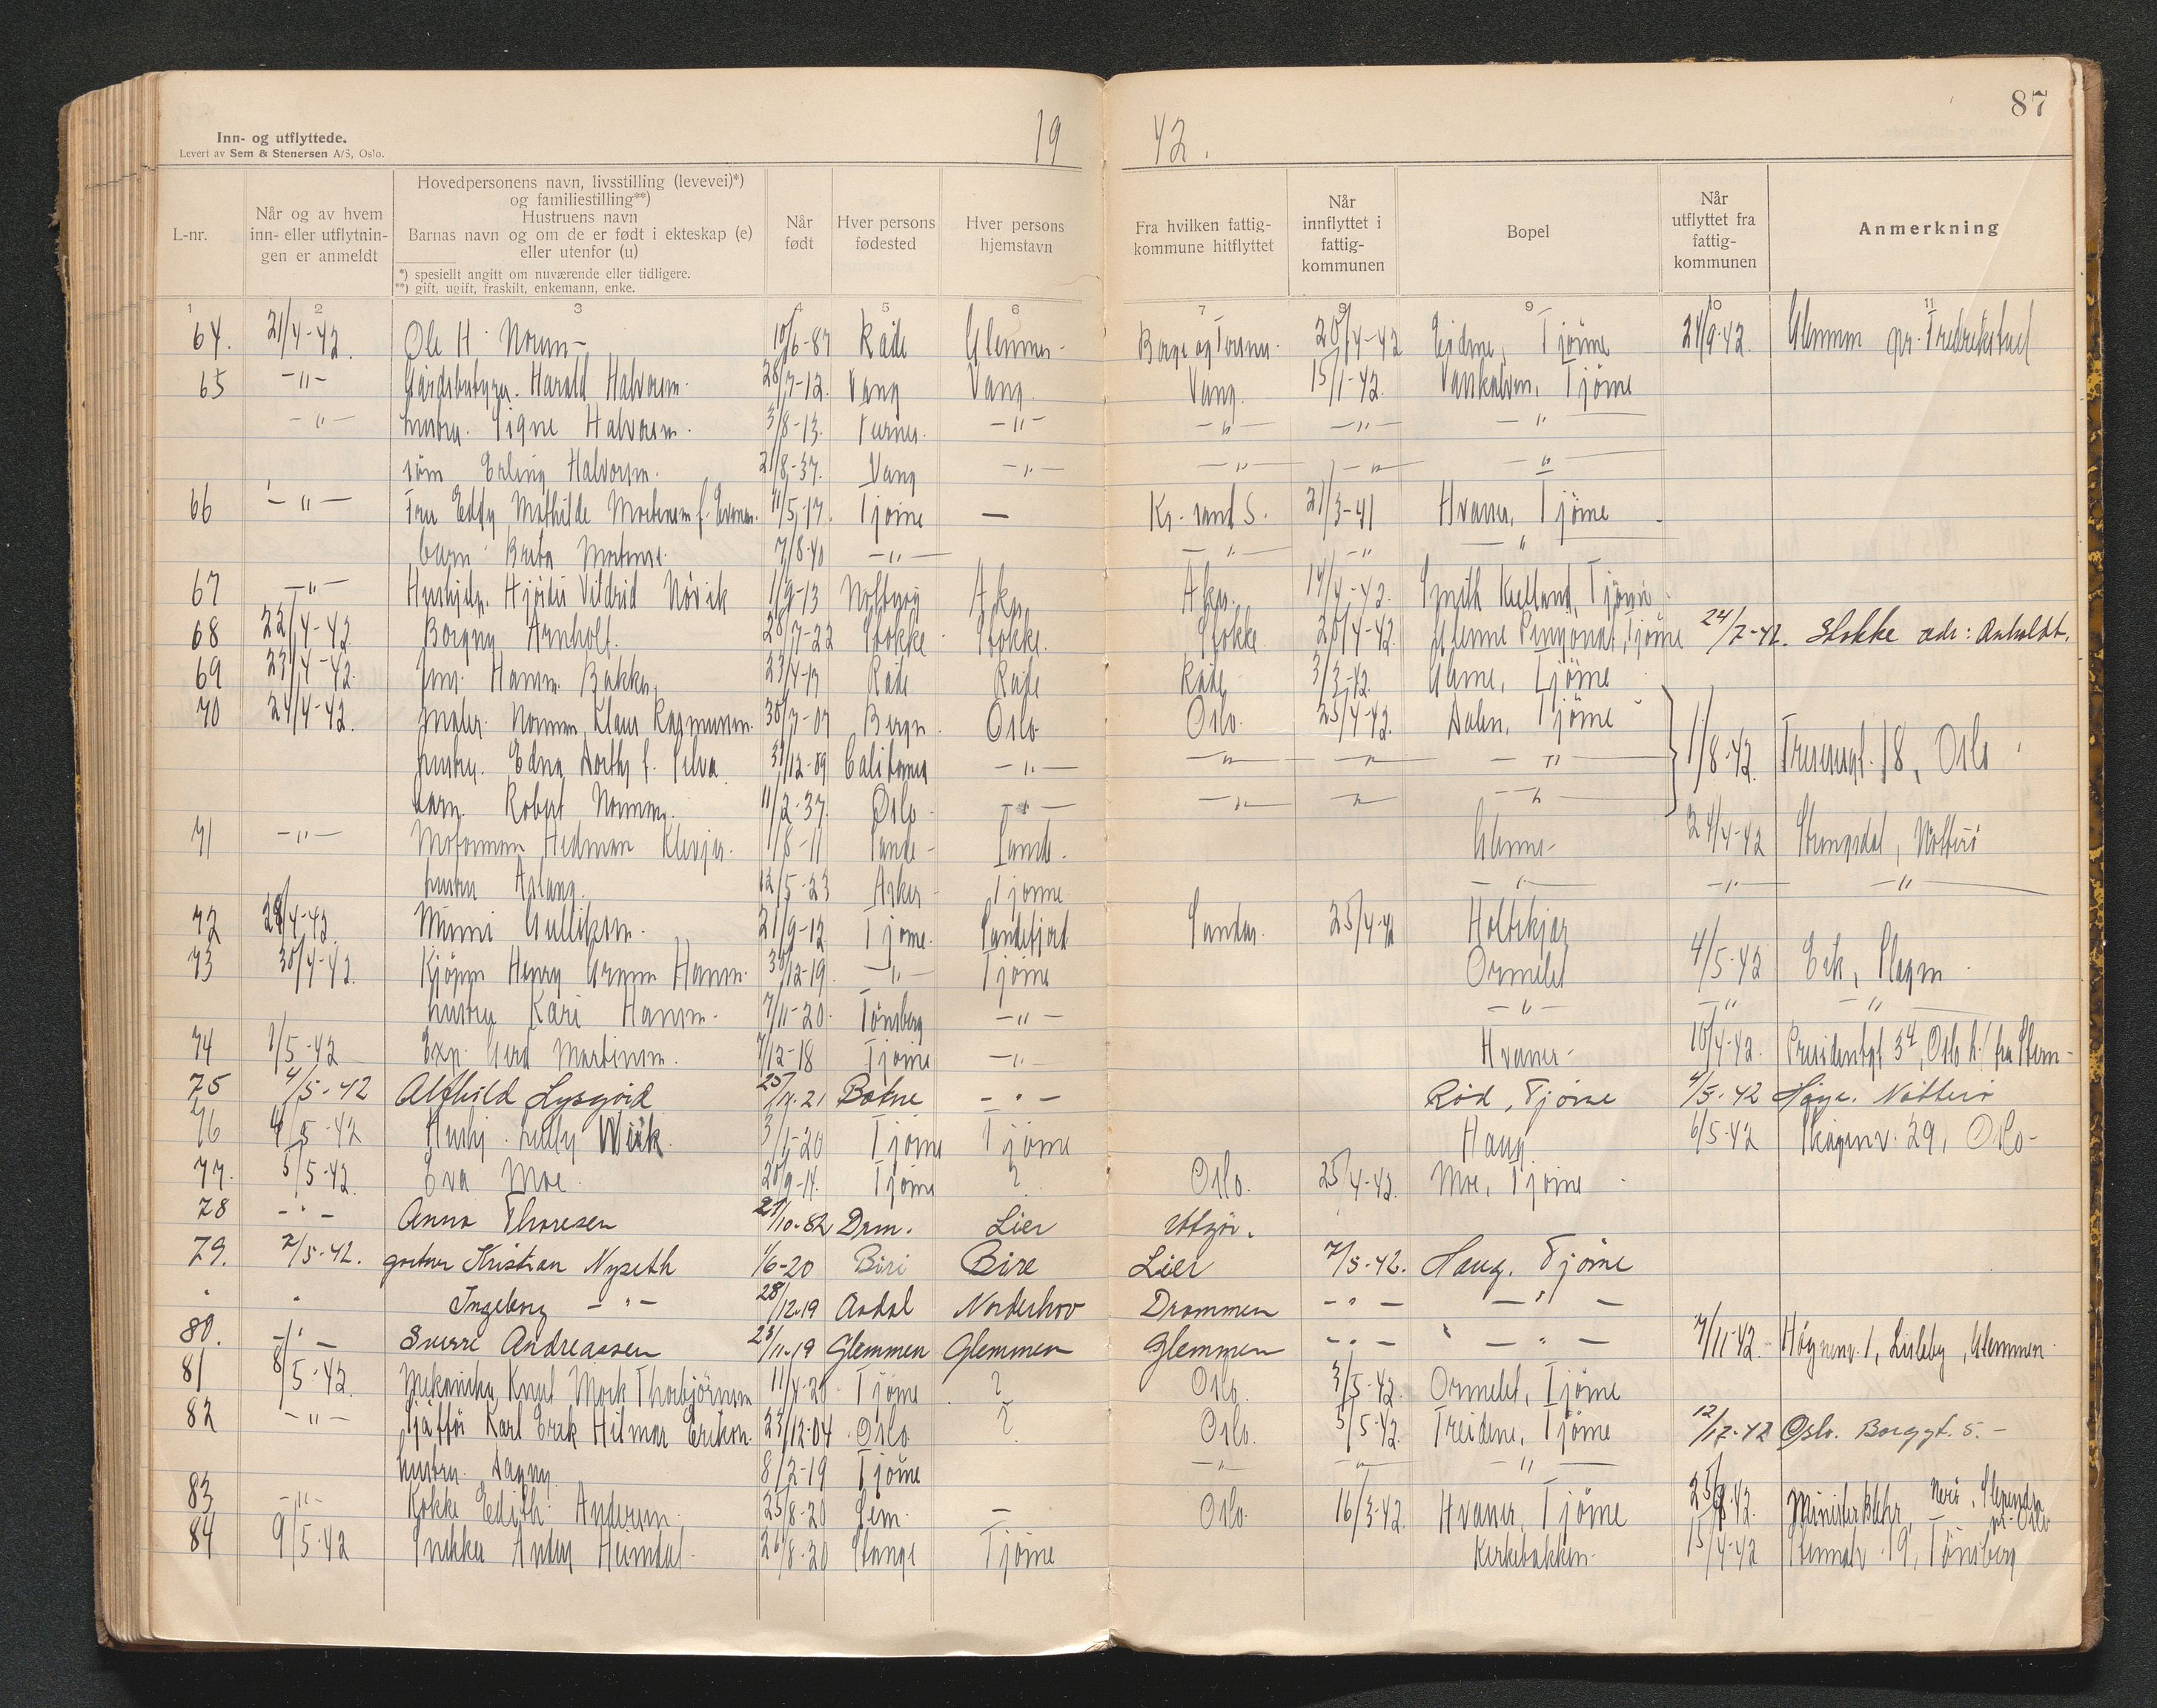 87
Inn- og utflyttede.
Levert av Sem & Stenersen A/S, Oslo.
19 42.
L-nr.
Når og av hvem inn- eller utflytnin-gen er anmeldt
Hovedpersonens navn, livsstilling (levevei)*)
og familiestilling**)
Hustruens navn
Barnas navn og om de er født i ekteskap (e)
eller utenfor (u)
*) spesielt angitt om nuværende eller tidligere.
**) gift, ugift, fraskilt, enkemann, enke.
Når født
Hver persons fødested
Hver persons hjemstavn
Fra hvilken fattig-kommune hitflyttet
Når innflyttet i fattig-kommunen
Bopel
Når utflyttet fra fattig-kommunen
Anmerkning
1 2 3 4 5 6 7 8 9 10 11
64. 21/4-42. Ole H. Norum 10/6-87 Råde Glemmen Borge og 20/4-42 Tjøme 24/9-42. Glemmen pr. Fredrikstad
65 -"- Harald Halvorsen. 28/7-12. Vang Vang Vang. 15/1-42. Tjøme
-"- hustru. Signe Halvorsen. 3/8-13. -"- -"- -"- -"-
sønn Erling Halvorsen. 21/8-37. Vang -"- -"- -"- -"-
66 -"- Fru Eddy Mathilde Mortensen f. 11/5-17. Tjøme — Kr. sand S. 21/3-41 Hvaner, Tjøme
barn 7/8-40 -"- -"- -"- -"-
67 -"- Hushjelp. Hjördis Vildrid Növik 1/9-13 Aker Aker. 14/4-42. Smith Kielland, Tjøme
68 22/4-42 Borgny Arnholt. 28/7-22 Stokke Stokke. Stokke. 20/4-42. Pensjonat, Tjøme 24/7-42. Stokke adr: Anholdt.
69 23/4-42. Hansen Bakke. Råde Råde Råde 3/3-42. Glenne, Tjøme
70 24/4-42. Klaus Rasmussen. 30/7-07 Bergen Oslo Oslo. 25/4-42. Dalen, Tjøme 1/8-42. 18, Oslo
hustru. Edna Dorthy f. Silva 31/12-09 California -"- -"- -"- -"-
barn. Robert 11/2-37. Oslo -"- -"- -"- -"-
71 -"- Motormann Hedman Klevjer. 1/8-11 Sande Sande. Glenne 24/4-42 Nøtterø
hustru Aslaug. 12/5-23 Asker Tjøme -"- -"- -"-
72 28/4-42. Mimmi Gulliksen. 21/9-12 Tjøme. Sandefjord Sandar. 25/4-42 Holtekjær
73 30/4-42. Kjøpm Henry Hansen. 30/12-19. -"- Tjøme Ormelet 4/5-42 Eik, Slagen
hustru Kari Hansen. 7/11-20. Tönsberg -"- -"- -"- -"-
74 1/5-42 Gerd Martinsen. 7/12-18 Tjøme -"- Hvaner 10/4-42. Presidentgt 3, Oslo
75 4/5-42 Alfhild Lysgård 25/11.21 Botne -"- Rød, Tjøme 4/5-42 Nøtterø
76 4/5-42 Hushj. Wiik. 3/1-20 Tjøme Tjøme Haug 6/5-42 29, Oslo
77. 5/5-42. Eva Moe 20/9-14. Tjøme ? Oslo. 25/4-42. Moe, Tjøme
78 -"- Anna Thoresen 21/10-82 Drm. Lier Utgår.
79. 2/5-42. gartner Kristian Nyseth 1/6-20 Biri Bire Lier 7/5-42. Haug. Tjøme
" " Ingeborg -"- 28/12-19 Aadal Norderhov Drammen -"- -"-
80. -"- Sverre Andreassen 23/11-19 Glemmen Glemmen Glemmen -"- -"- 7/11-42. Høgnenv. 1, Lisleby, Glemmen
81 8/5-42. Knut Mork Thorbjörnsen 11/4-21 Tjøme ? Oslo. 3/5-42. Ormelet, Tjøme
82 -"- Sjåfför Karl Erik Hilmar Erikson. 23/12-04 Oslo ? Oslo. 5/5-42. Treidene, Tjøme 12/12-42 Oslo. Borggt. 5. -
hustru. Dagny 8/2-19 Tjøme -"- -"- -"-
83 -"- Kokke Edith Andersen. 25/8-20 Sem. — Oslo. 16/3-42. Hvaner, Tjøme Minister
84 9/5-42 Snekker Heimdal 20/8-20 Stange Tjøme Kirkebakken 15/4-42 19, Tönsberg